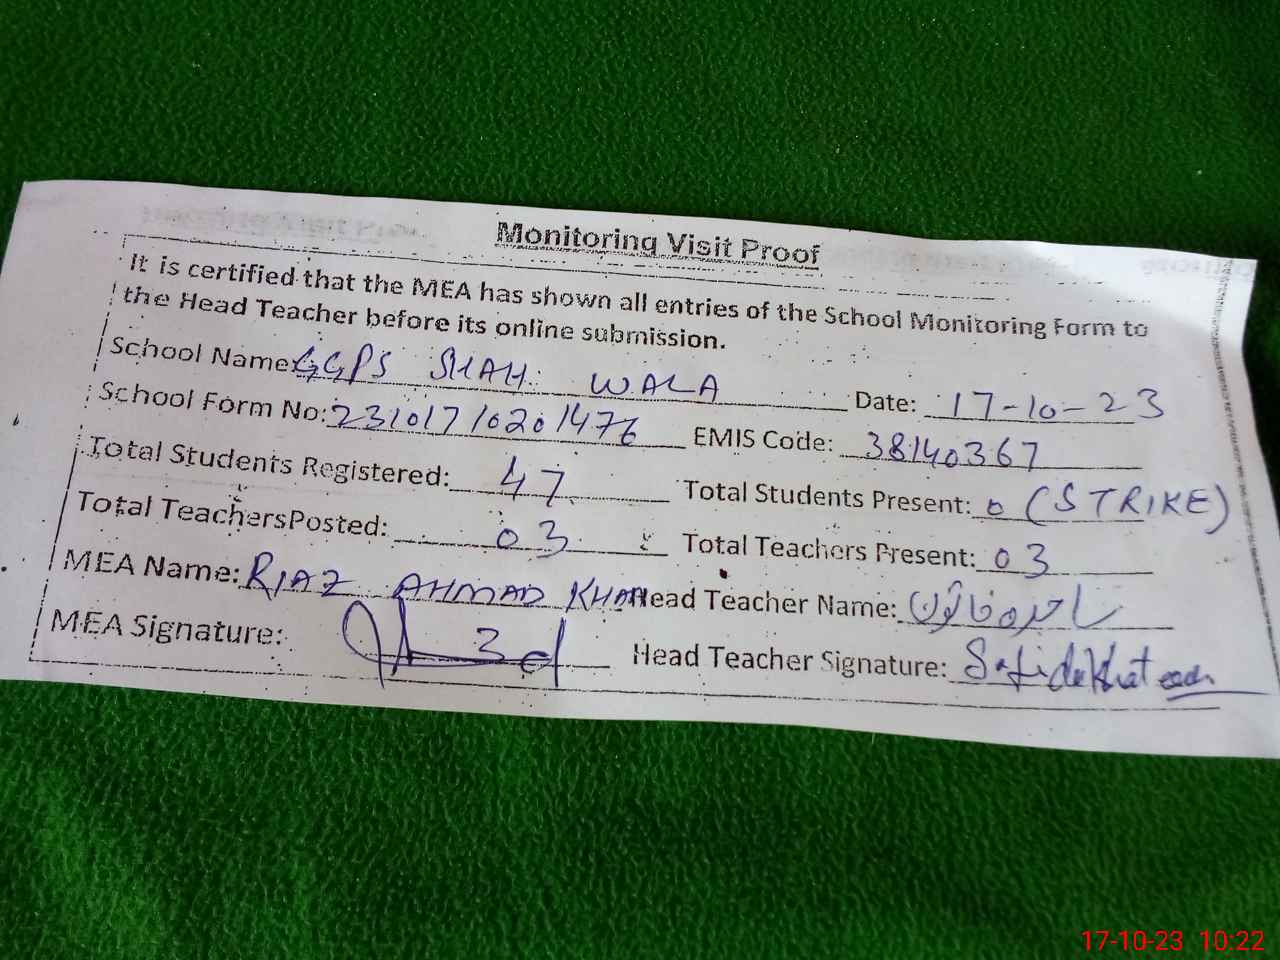 Monitoring Visit Proof
It is certified that the MEA has shown all entries of the School Monitoring Form to
the Head Teacher before its online submission.
School Name: GGPS SHAH WALA Date: 17-10-23
School Form No: 23101710201476 EMIS Code: 38140367
Total Students Registered: 47 Total Students Present: 0 (STRIKE)
Total TeachersPosted: 03 Total Teachers Present: 03
MEA Name: RIAZ AHMAD KHAN Head Teacher Name:
MEA Signature: Head Teacher Signature:
17-10-23 10:22